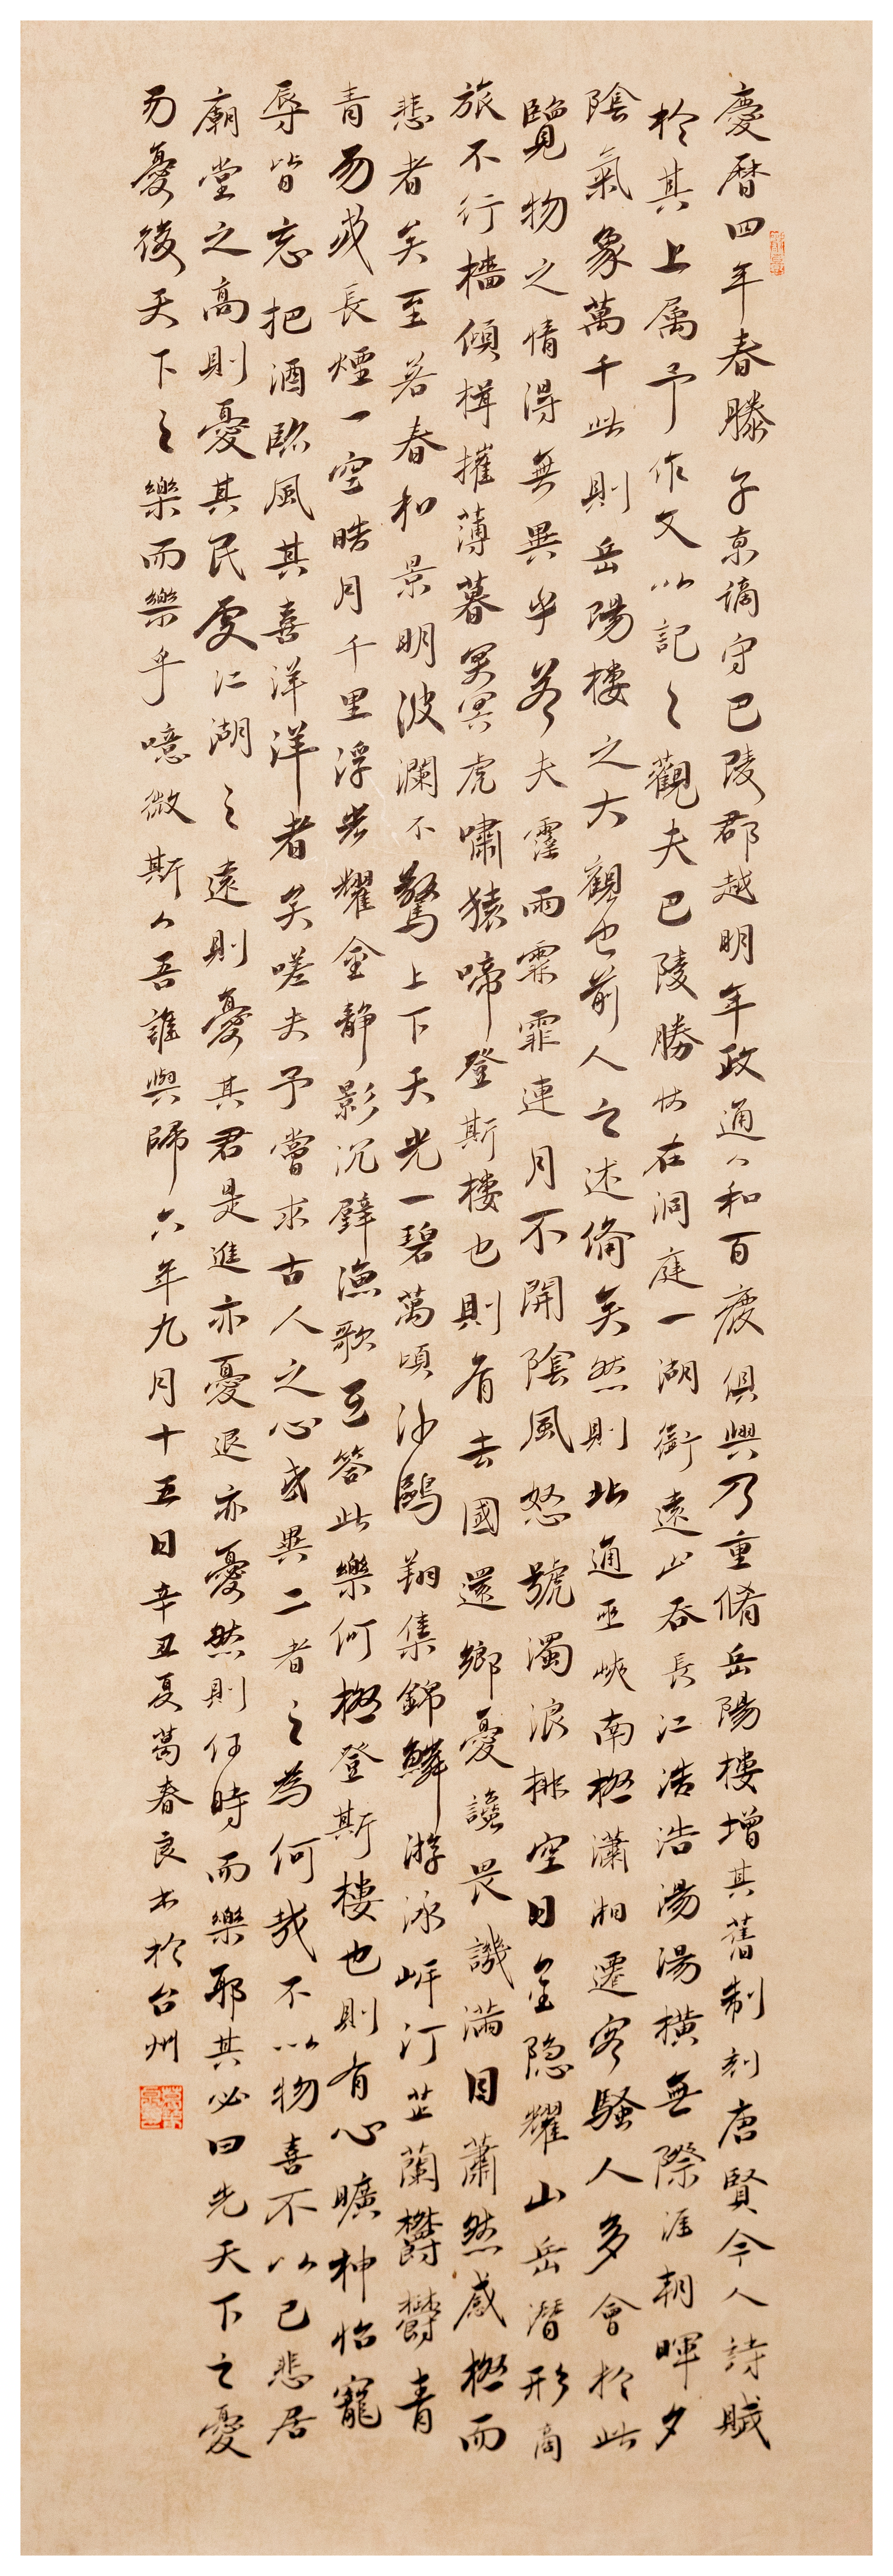 慶曆四年春滕子京謫守巴陵郡越明年政通人和百廢俱興乃重脩岳陽樓增其舊制刻唐賢今人詩賦
於其上属予作文以記之觀夫巴陵勝狀在洞庭一湖銜遠山吞長江浩浩湯湯橫無際涯朝暉夕
陰氣象萬千此則岳陽樓之大觀也前人之述備矣然則北通巫峽南極瀟湘遷客騷人多會於此
覽物之情得無異乎若夫霪雨霏霏連月不開陰風怒號濁浪排空日星隐耀山岳潛形商
旅不行檣傾楫摧薄暮冥冥虎嘯猿啼登斯樓也則有去國還鄉憂讒畏譏滿目蕭然感極而
悲者矣至若春和景明波瀾不驚上下天光一碧萬頃沙鷗翔集錦鱗游泳岸汀芷蘭欝欝青
青而或長煙一空皓月千里浮光耀金靜影沉璧漁歌互答此樂何極登斯樓也則有心曠神怡寵
辱皆忘把酒臨風其喜洋洋者矣嗟夫予嘗求古人之心或異二者之為何哉不以物喜不以己悲居
廟堂之高則憂其民處江湖之遠則憂其君是進亦憂退亦憂然則何時而樂耶其必曰先天下之憂
而憂後天下之樂而樂乎噫微斯人吾誰與歸六年九月十五日辛丑夏葛春良书於台州